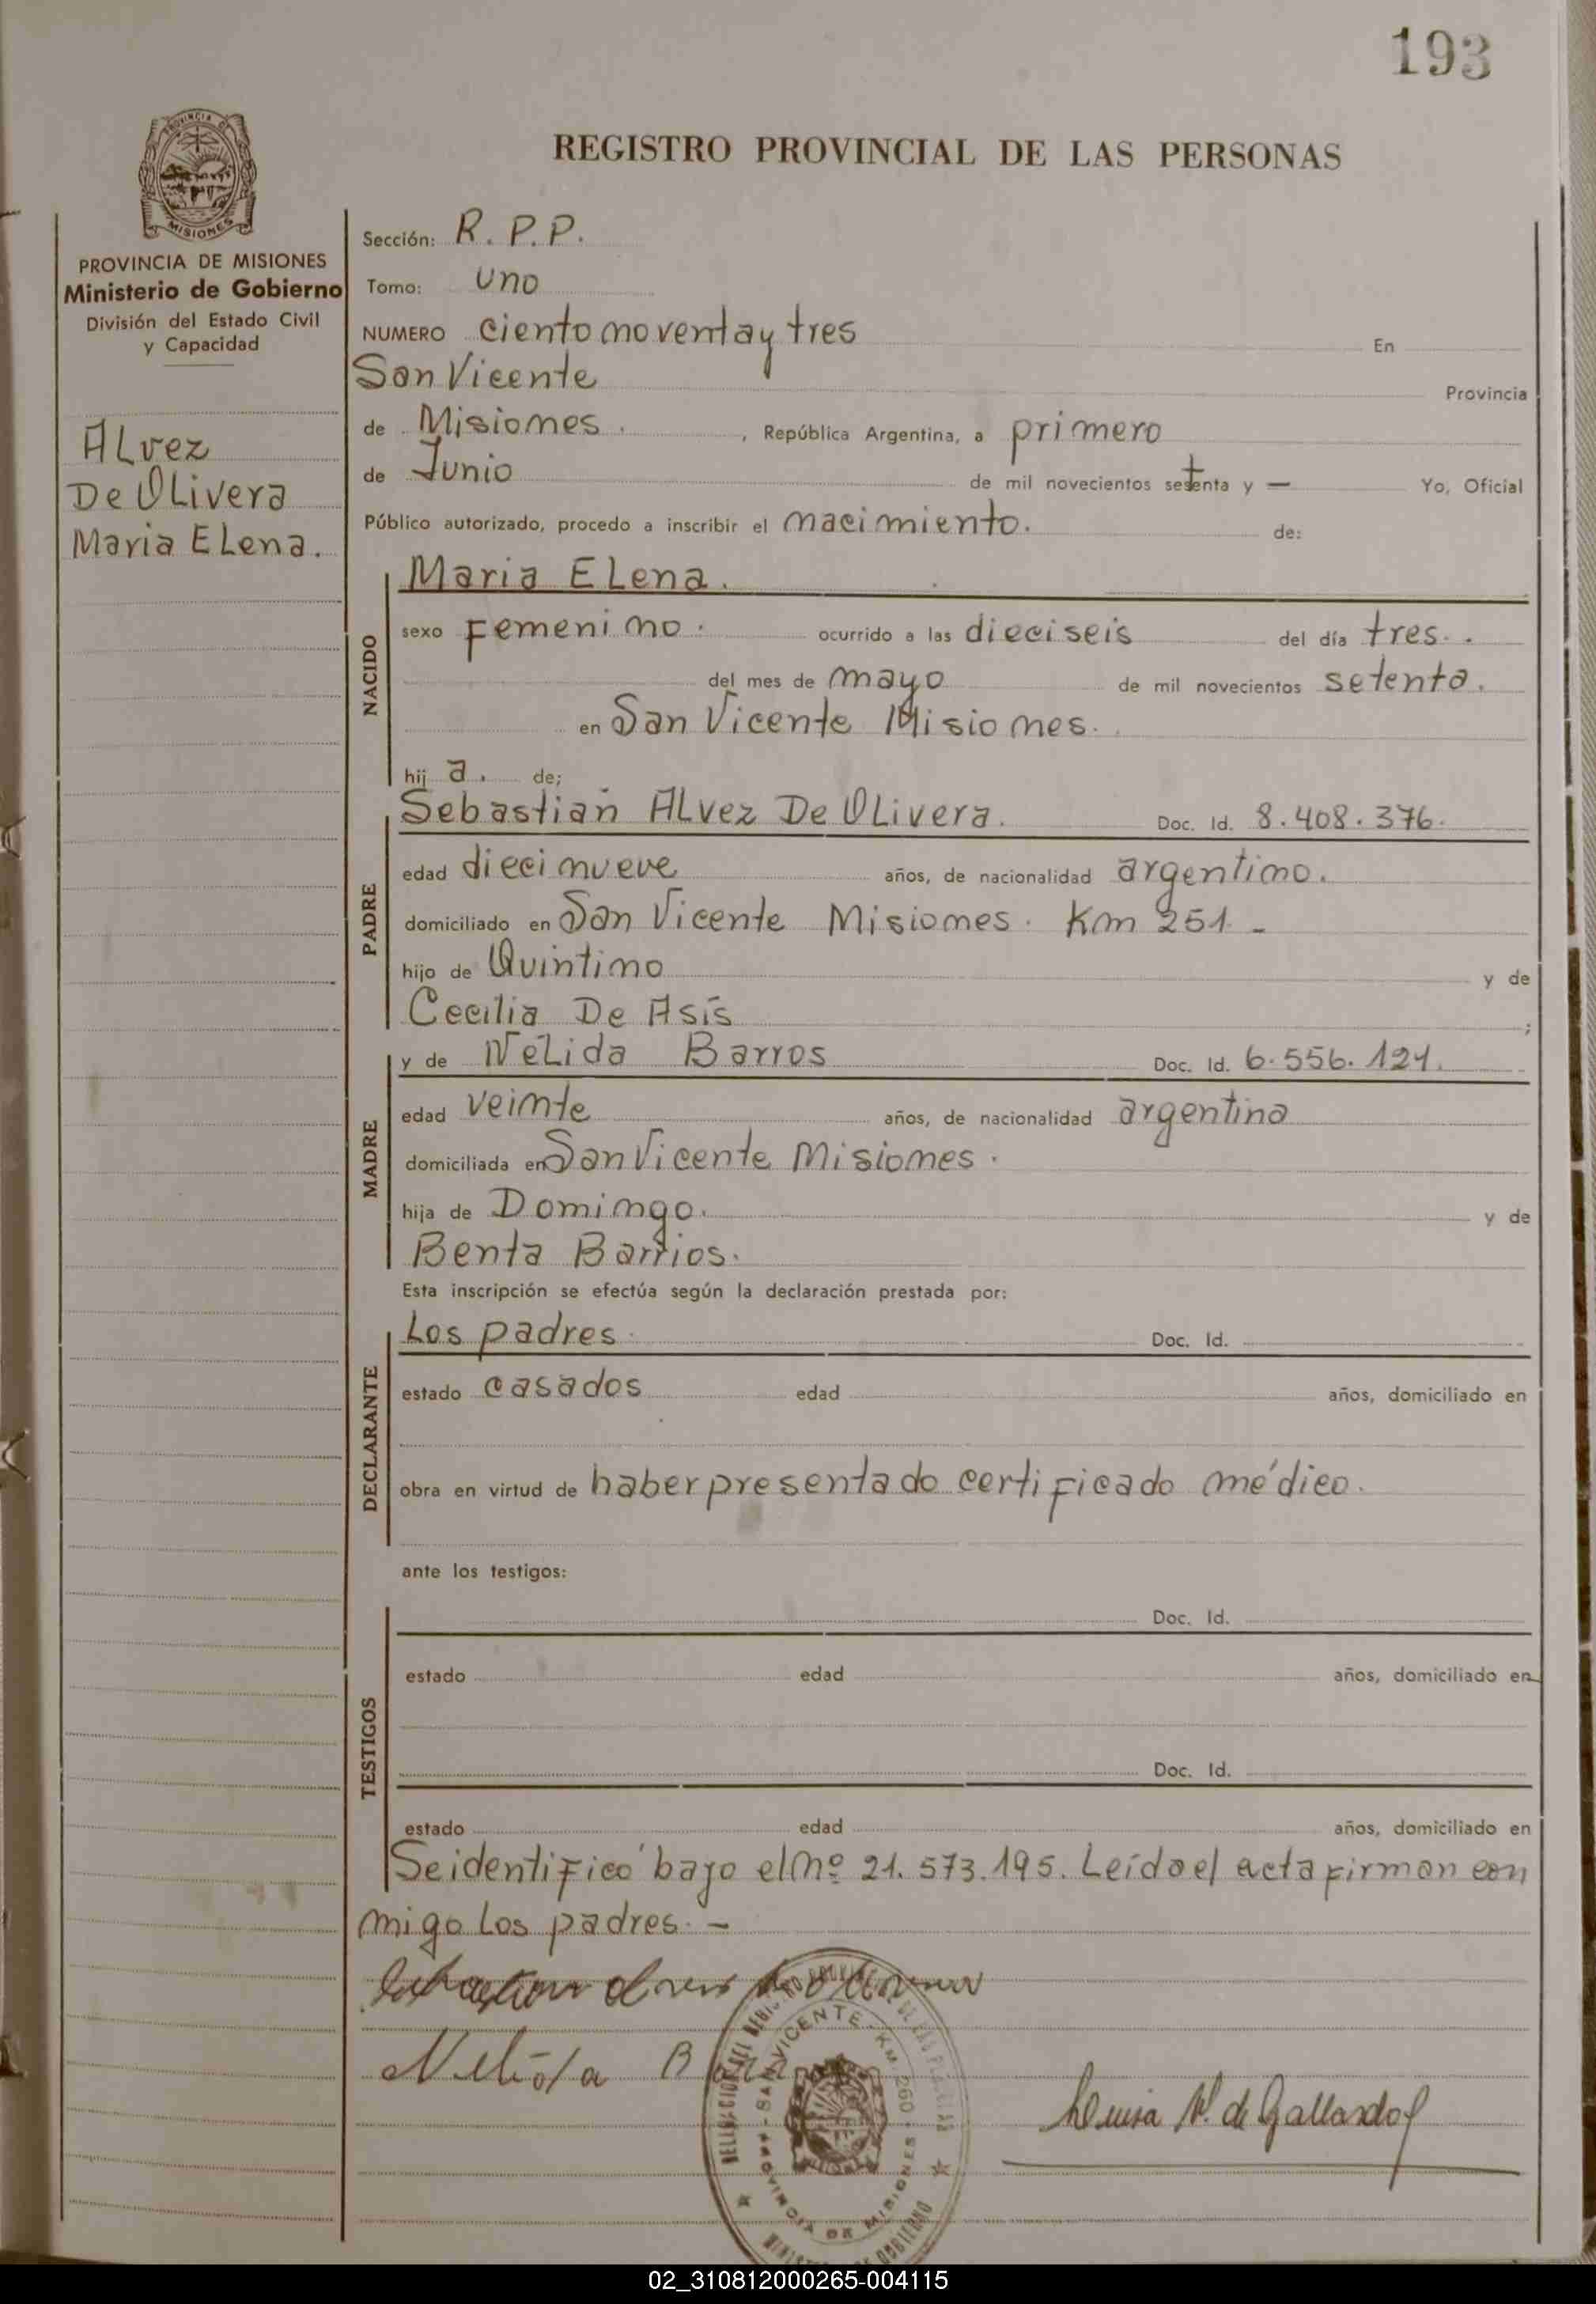 193
REGISTRO PROVINCIAL DE LAS PERSONAS
PROVINCIA DE
MISIONES
PROVINCIA DE MISIONES
Ministerio de Gobierno
División del Estado Civil
y Capacidad
ALvez
De OLivera
Maria ELena.
Sección: R. P. P.
Tomo: uno
NUMERO ciento noventa y tres En
San Vicente Provincia
de Misiones. , República Argentina, a primero
de Junio de mil novecientos setenta y — Yo, Oficial
Público autorizado, procedo a inscribir el nacimiento. de:
NACIDO
Maria ELena.
sexo Femenino. ocurrido a las dieciseis del día tres.
del mes de mayo de mil novecientos setenta.
en San Vicente Misiones.
hij a. de;
PADRE
Sebastian ALvez De OLivera. Doc. Id. 8.408.376.
edad diecinueve años, de nacionalidad argentino.
domiciliado en San Vicente Misiones. Km 251. -
hijo de Quintino y de
Cecilia De Asís ;
MADRE
y de NéLida Barros Doc. Id. 6.556.121.
edad veinte años, de nacionalidad argentina
domiciliada en San Vicente Misiones.
hija de Domingo. y de
Benta Barrios.
Esta inscripción se efectúa según la declaración prestada por:
DECLARANTE
Los padres. Doc. Id.
estado casados edad años, domiciliado en
obra en virtud de haber presentado certificado médico.
ante los testigos:
TESTIGOS
Doc. Id.
estado edad años, domiciliado en
Doc. Id.
estado edad años, domiciliado en
Se identificó bajo el nº 21.573.195. Leído el acta firman con
migo Los padres. -
Nelida
SAN VICENTE - KM. 260
PROVINCIA DE MISIONES
Luisa N. de Gallardo
02_310812000265-004115